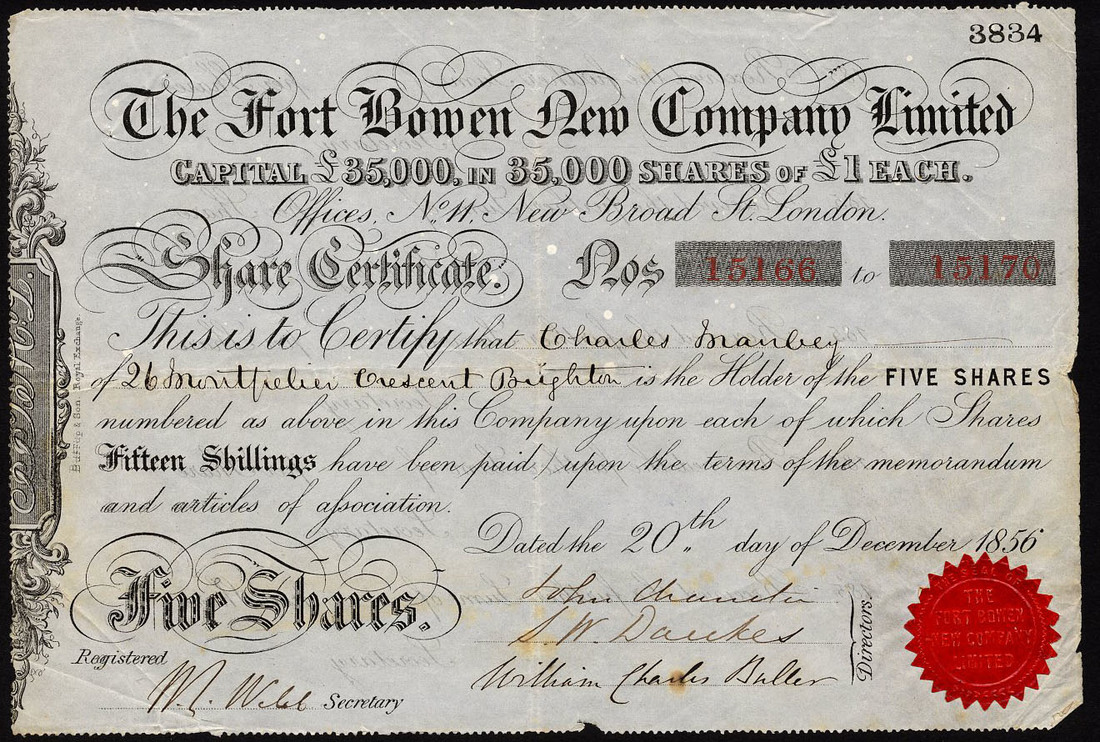 3834
The Fort Bowen New Company Limited
CAPITAL £35,000, IN 35,000 SHARES OF £1 EACH.
Offices, No. 11, New Broad St. London.
Share Certificate: Nos 15166 to 15170
This is to Certify that Charles Manbey
of 26 Montpelier Crescent Brighton is the Holder of the FIVE SHARES
numbered as above in this Company upon each of which Shares
Fifteen Shillings have been paid upon the terms of the memorandum
and articles of aſsociation.
Dated the 20th day of December 1856
Five Shares.
John
S. W. Daukes
William Charles Buller
Directors.
Registered
W. Webb Secretary
THE
FORT BOWEN
NEW COMPANY
LIMITED
Buffup & Son. Royal Exchange.